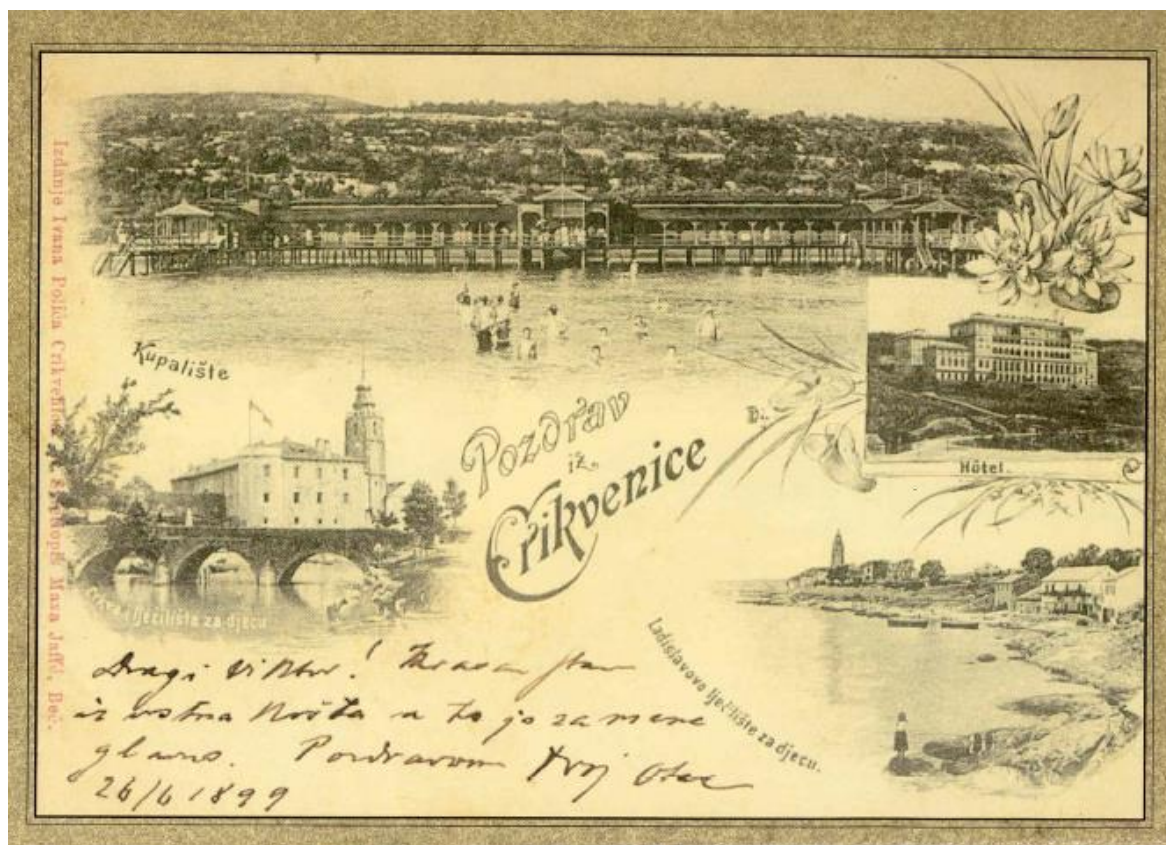 Izdanje Ivana Polića Crikvenica Maxa Jaffé, Beč.
Kupalište
Pozdrav
iz
Crikvenice
Hôtel.
lječilište za djecu
Ladislavovo lječilište za djecu.
Dragi Viktor! Krasan stan
iz a to je za mene
glavno. Pozdravom tvoj otac
26/6 1899